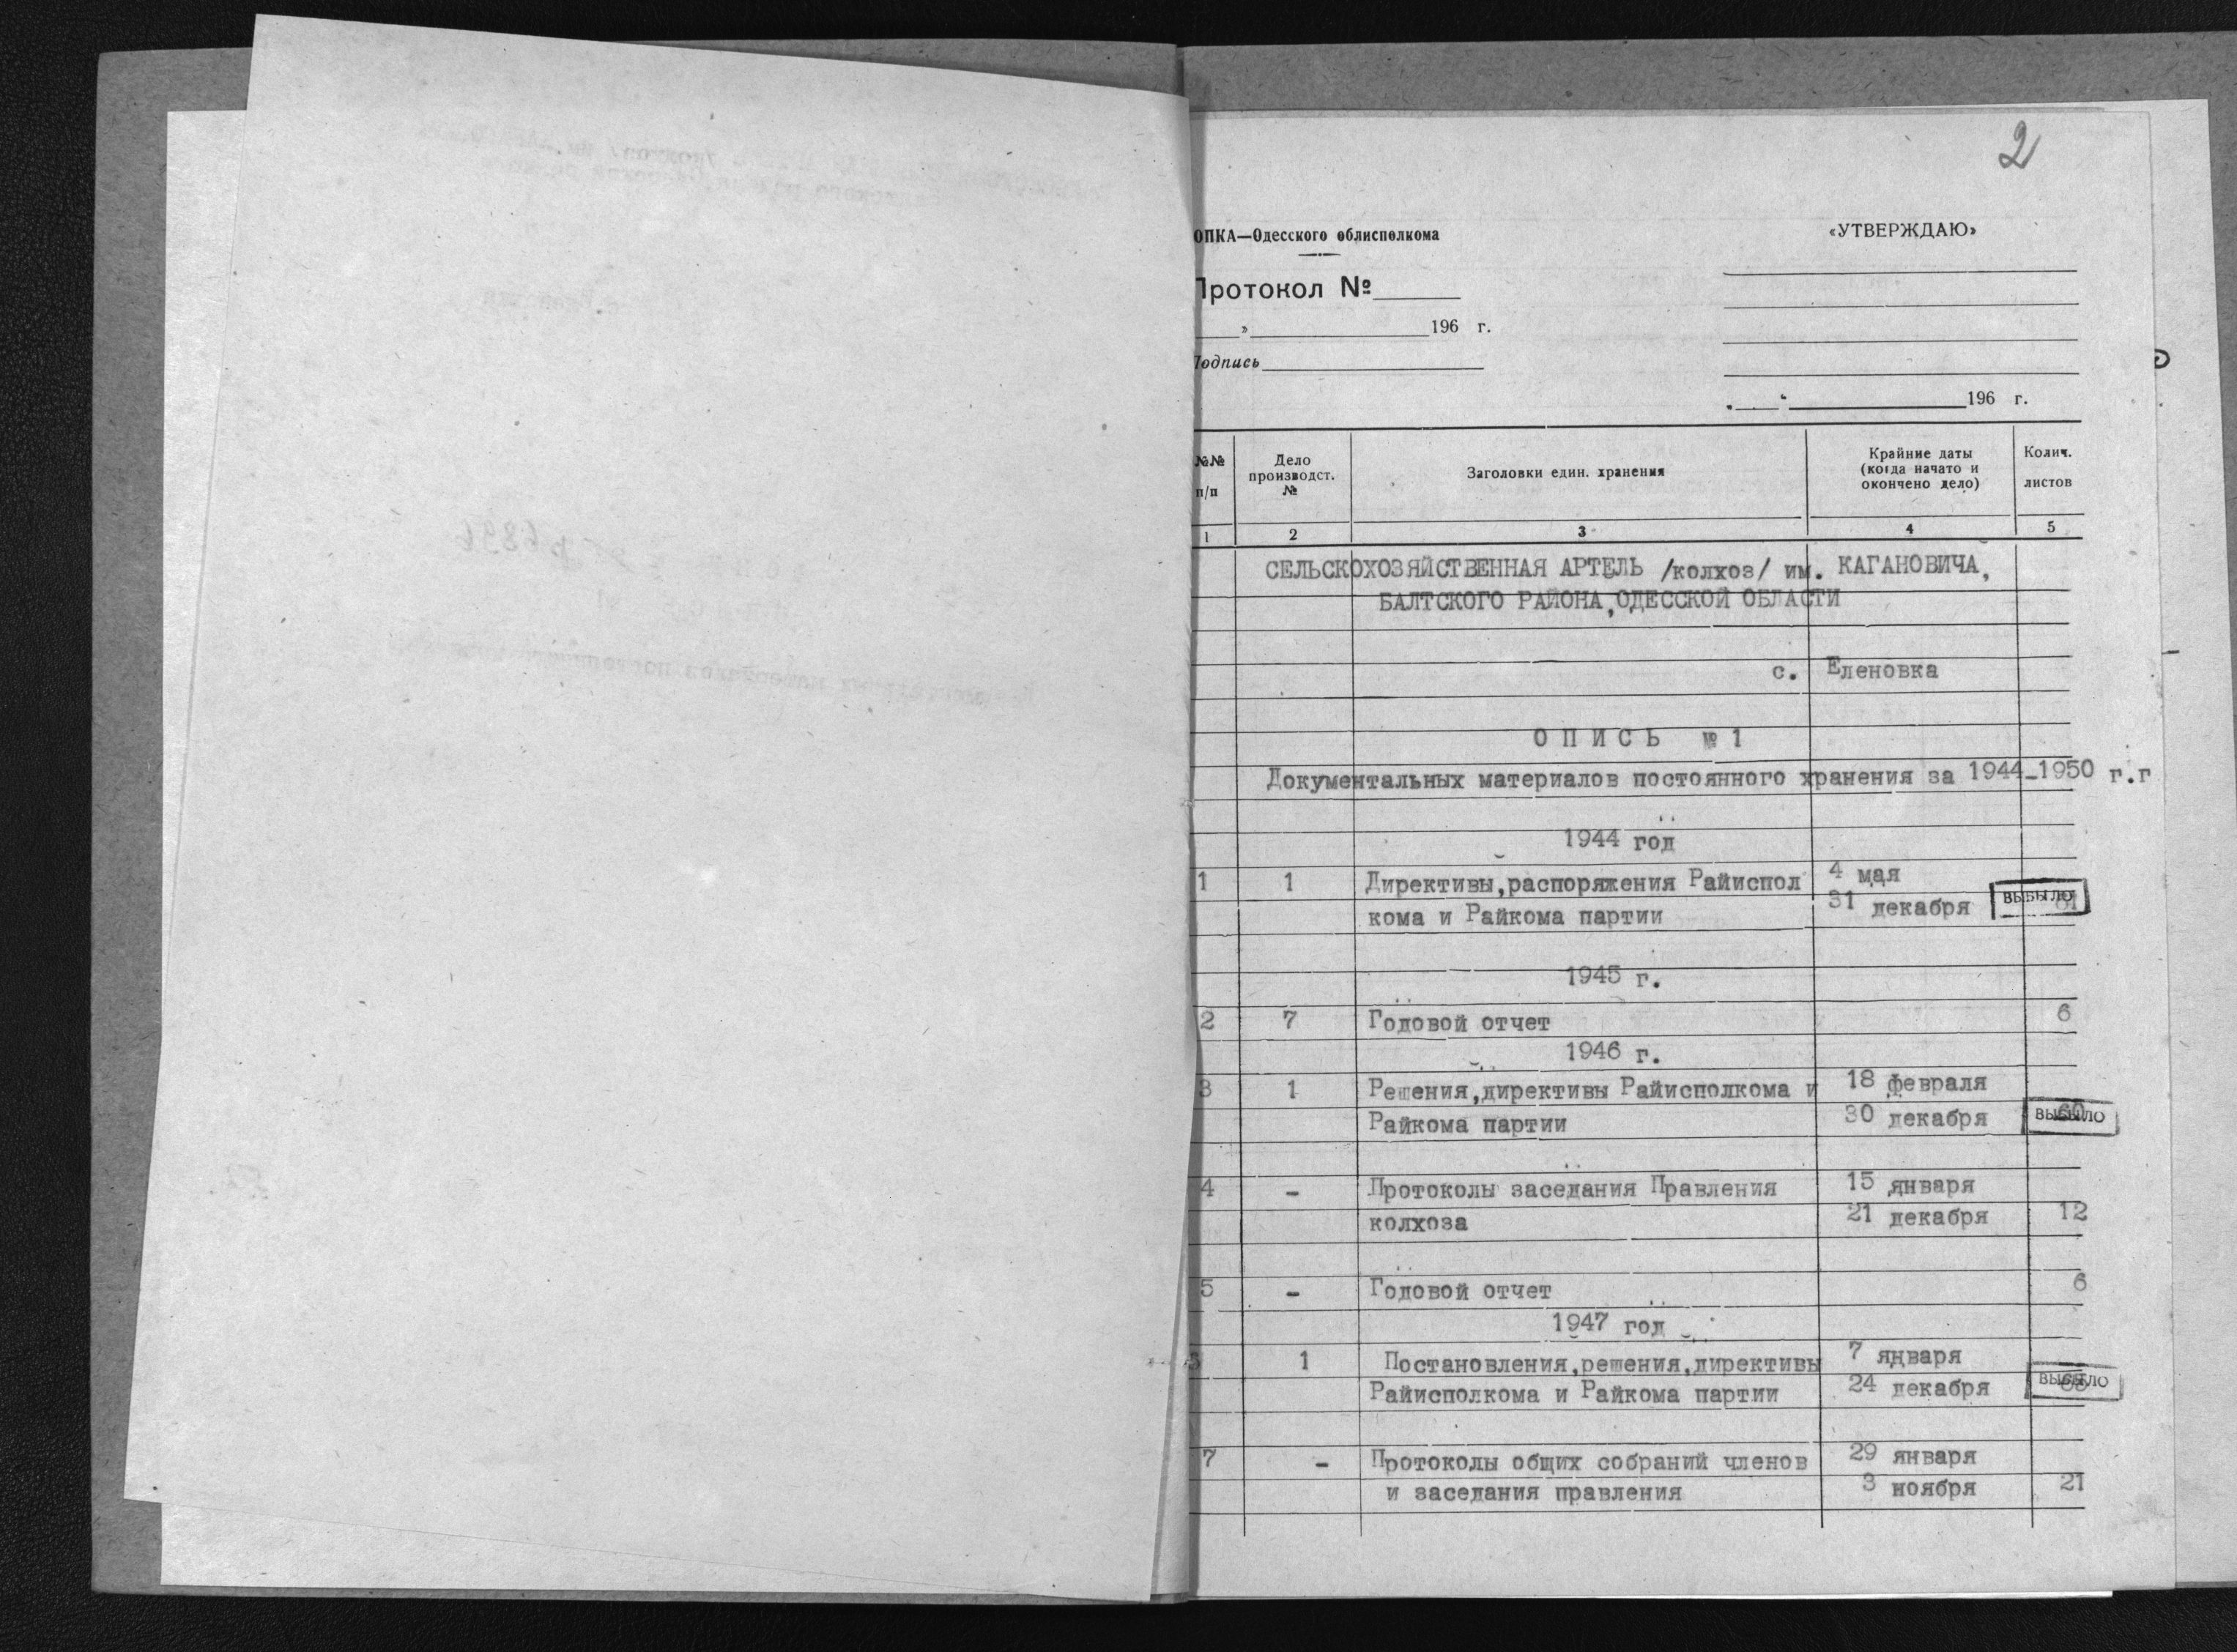 2
ОПКА—Одесского облисполкома
«УТВЕРЖДАЮ»
Протокол №
» 196 г.
Подпись
196 г.
№№ п/п
Дело производст. №
Заголовки един. хранения
Крайние даты (когда начато и окончено дело)
Колич. листов
1 2 3 4 5
СЕЛЬСКОХОЗЯЙСТВЕННАЯ АРТЕЛЬ /колхоз/ им. КАГАНОВИЧА,
БАЛТСКОГО РАЙОНА,ОДЕССКОЙ ОБЛАСТИ
с. Еленовка
О П И С Ь № 1
Документальных материалов постоянного хранения за 1944-1950 г.г
1944 год
1 1 Директивы,распоряжения Райиспол 4 мая
кома и Райкома партии 31 декабря ВЫБЫЛО
1945 г.
2 7 Годовой отчет 6
1946 г.
3 1 Решения,директивы Райисполкома и 18 февраля
Райкома партии 30 декабря 60 ВЫБЫЛО
4 - Протоколы заседания Правления 15 января
колхоза 21 декабря 12
5 - Годовой отчет 6
1947 год
1 Постановления,решения,директивы 7 января
Райисполкома и Райкома партии 24 декабря ВЫБЫЛО
7 - Протоколы общих собраний членов 29 января
и заседания правления 3 ноября 21